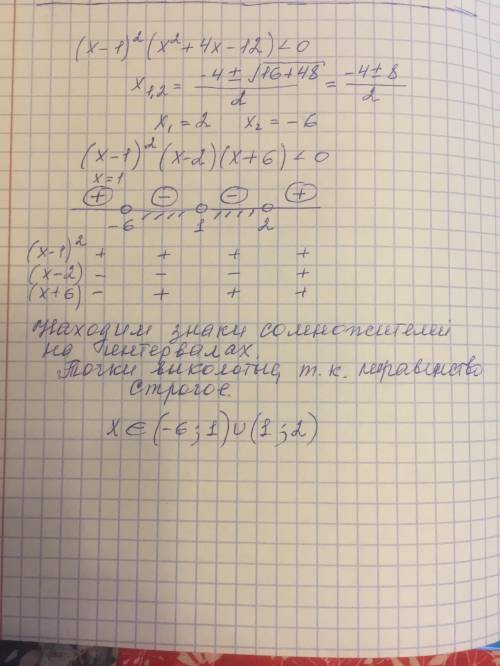 (x-1)²(x²+4x-12)<0
x₁,₂ = (-4±√(16+48))/2 = (-4±8)/2
x₁=2 x₂=-6
(x-1)²(x-2)(x+6)<0
x=1
+ - - +
-6 1 2
(x-1)² + + + +
(x-2) - - - +
(x+6) - + + +
Находим знаки сомножителей
на интервалах.
Точки выколотые, т.к. неравенство
строгое.
x∈(-6;1)∪(1;2)